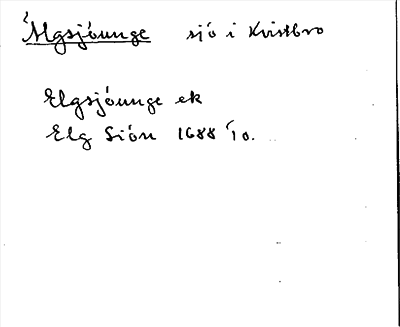 Älgsjöunge sjö i Kvistbro
Elgsjöunge ek
Elg Siön 1688  10.